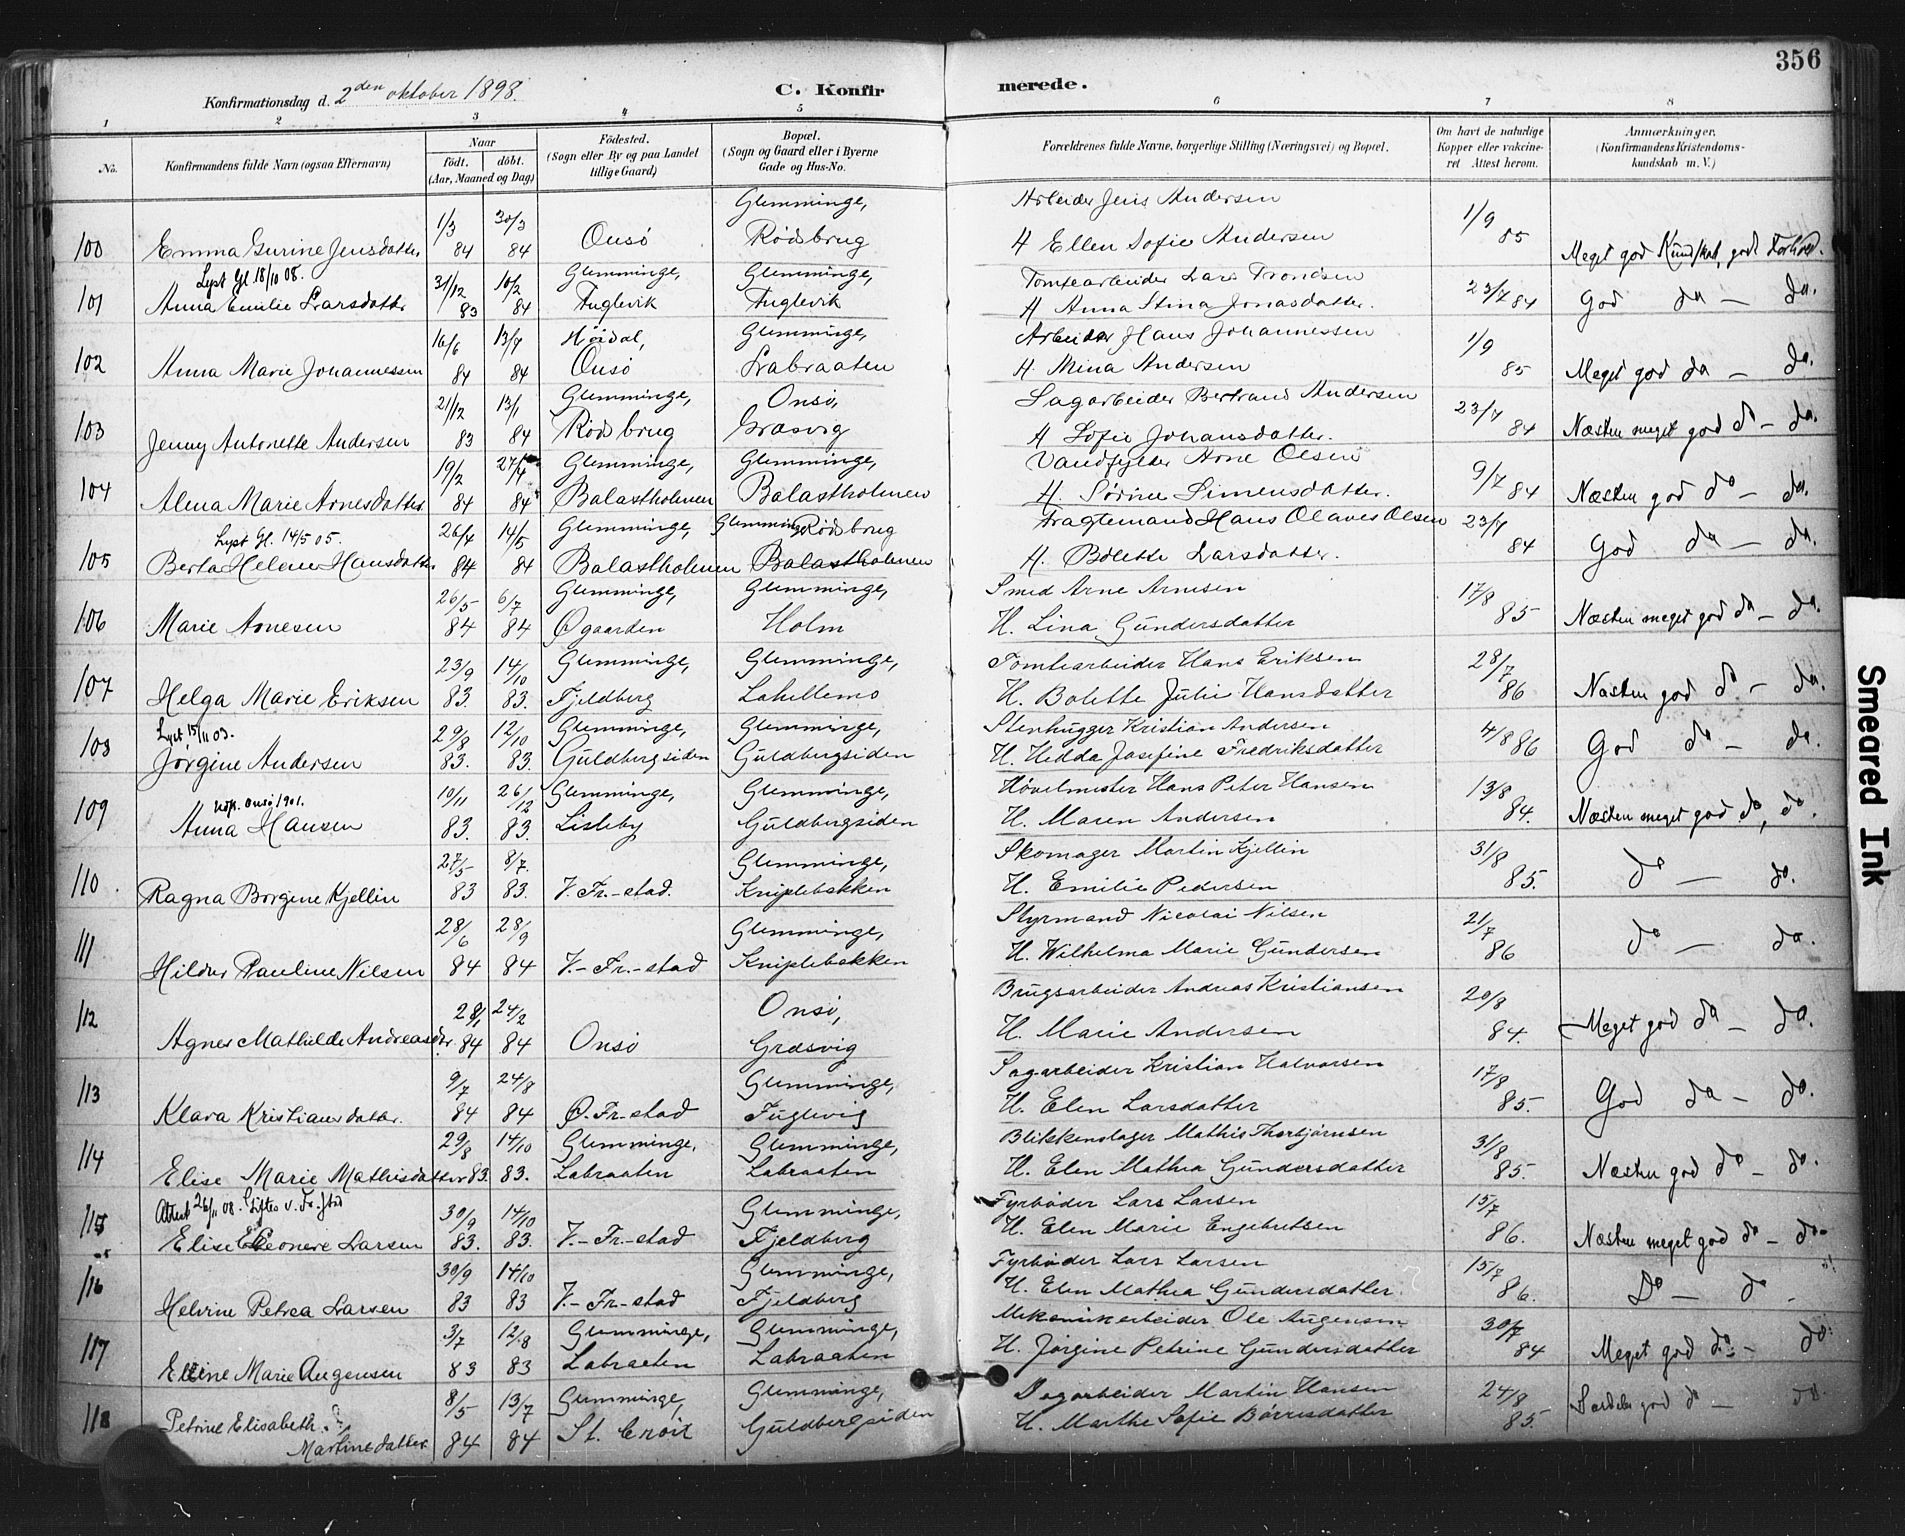 356
Konfirmationsdag d. 2den oktober 1898.
C. Konfirmerede.
1 2 3 4 5 6 7 8
No.
Konfirmandens fulde Navn (ogsaa Efternavn)
Naar
födt. döbt.
(Aar, Maaned og Dag)
Födested.
(Sogn eller By og paa Landet
tillige Gaard)
Bopæl.
(Sogn og Gaard eller i Byerne
Gade og Hus-No.
Forældrenes fulde Navne, borgerlige Stilling (Næringsvei) og Bopæl.
Om havt de naturlige
Kopper eller vakcine-
ret Attest herom.
Anmærkninger.
(Konfirmandens Kristendoms-
kundskab m. V.)
100 Emma Gurine Jensdatter 1/3 84 30/3 84 Onsö Glemminge, Rödsbrug Arbeider Jens Andersen H Ellen Sofie Andersen 1/9 85 Meget god Kundskab, godt Forhold.
Lyst Gl 18/10 08.
101 Anna Emilie Larsdatter 31/12 83 10/2 84 Glemminge, Fuglevik Glemminge, Fuglevik Tomtearbeider Lars Trondsen H Anna Stina Jonasdatter. 23/7 84 God do — do.
102 Anna Marie Johannessen 16/6 84 13/7 84 Höidal, Onsö Glemminge, Labraaten Arbeider Hans Johannessen H. Mina Andersen 1/9 85 Meget god do — do.
103 Jenny Antonette Andersen 21/12 83 13/1 84 Glemminge, Rödsbrug Onsö, Græsvig Sagarbeider Bertrand Andersen H Sofie Johansdatter. 23/7 84 Næsten meget god do — do.
104 Alma Marie Arnesdatter 19/2 84 27/4 84 Glemminge, Balastholmen Glemminge, Balastholmen Vandfylder Arne Olsen H. Sörine Simensdatter. 9/7 84 Næsten god do — do.
Lyst Gl. 14/5 05.
105 Berta Helene Hansdatter 26/4 84 14/5 84 Glemminge, Balastholmen Glemminge Rödsbrug Balastholmen Fragtemand Hans Olaves Olsen H. Bolette Larsdatter. 23/7 84 God do — do.
106 Marie Arnesen 26/5 84 6/7 84 Glemminge, Øgaarden Glemminge, Holm Smed Arne Arnesen H. Lina Gundersdatter 17/8 85 Næsten meget god do — do.
107 Helga Marie Eriksen 23/9 83. 14/10 83. Glemminge, Fjeldberg Glemminge, Lahellemo Tomtearbeider Hans Eriksen H. Bolette Julie Hansdatter 28/7 86 Næsten god do — do.
Lyst 15/11 03.
108 Jørgine Andersen 29/8 83. 12/10 83. Glemminge, Guldbergsiden Glemminge, Guldbergsiden Stenhugger Kristian Andersen H. Hedda Josefine Fredriksdatter 4/8 86 God do — do.
Onsö 1901.
109 Anna Hansen 10/11 83. 26/12 83. Glemminge, Lisleby Glemminge, Guldbergsiden Høvelmester Hans Peter Hansen H. Maren Andersen 13/8 84. Næsten meget god do, do.
110 Ragna Borgine Kjellin 27/5 83 8/7. 83. V. Fr.-stad. Glemminge, Kniplebakken Skomager Martin Kjellin H. Emilie Pedersen 31/8 85. do — do.
111 Hildur Pauline Nilsen 28/6 84 28/9 84 V.-Fr.-stad Glemminge, Kniplebakken Styrmand Nicolai Nilsen H. Wilhelma Marie Gundersen 21/7 86 do — do.
112 Agnes Mathilde Andreasdtr. 28/1 84 24/2 84 Onsö Onsö, Græsvig Brugsarbeider Andreas Kristiansen H. Marie Andersen 20/8 84. Meget god do — do.
113 Klara Kristiansdatter. 9/7 84 24/8 84 Ø.Fr-stad Glemminge, Fuglevig Sagarbeider Kristian Halvorsen H. Elen Larsdatter 17/8 85. God do — do.
114 Elise Marie Mathisdatter 29/8 83. 14/10 83. Glemminge, Labraaten Glemminge, Labraaten Blikkenslager Mathis Thorbjørnsen H. Elen Mathea Gundersdatter 31/8 85. Næsten god do — do.
Attest 26/11 08. Giftes v. Fr.stad
115 Elise Eleonore Larsen 30/9 83. 14/10 83. V.-Fr-stad Glemminge, Fjeldberg Fyrbøder Lars Larsen H. Elen Marie Engebretsen 15/7 86. Næsten meget god do — do
116 Helvine Petrea Larsen 30/9 83 14/10 83 V.-Fr-stad Glemminge, Fjeldberg Fyrbøder Lars Larsen H. Elen Mathea Gundersdatter. 15/7 86. Do — do
117 Elline Marie Augensen 3/7 83 12/8 83 Glemminge, Labraaten Glemminge, Labraaten Mekanikarbeider Ole Augensen H. Jørgine Petrine Gundersdatter 30/7 84 Meget god do — do.
118 Petrine Elisabeth Martinsdatter 8/5 84 13/7 84 Glemminge, St. Glemminge, Guldbergsiden Dagarbeider Martin Hansen H. Marthe Sofie Börresdatter 24/8 85. god do — do.
Smeared Ink